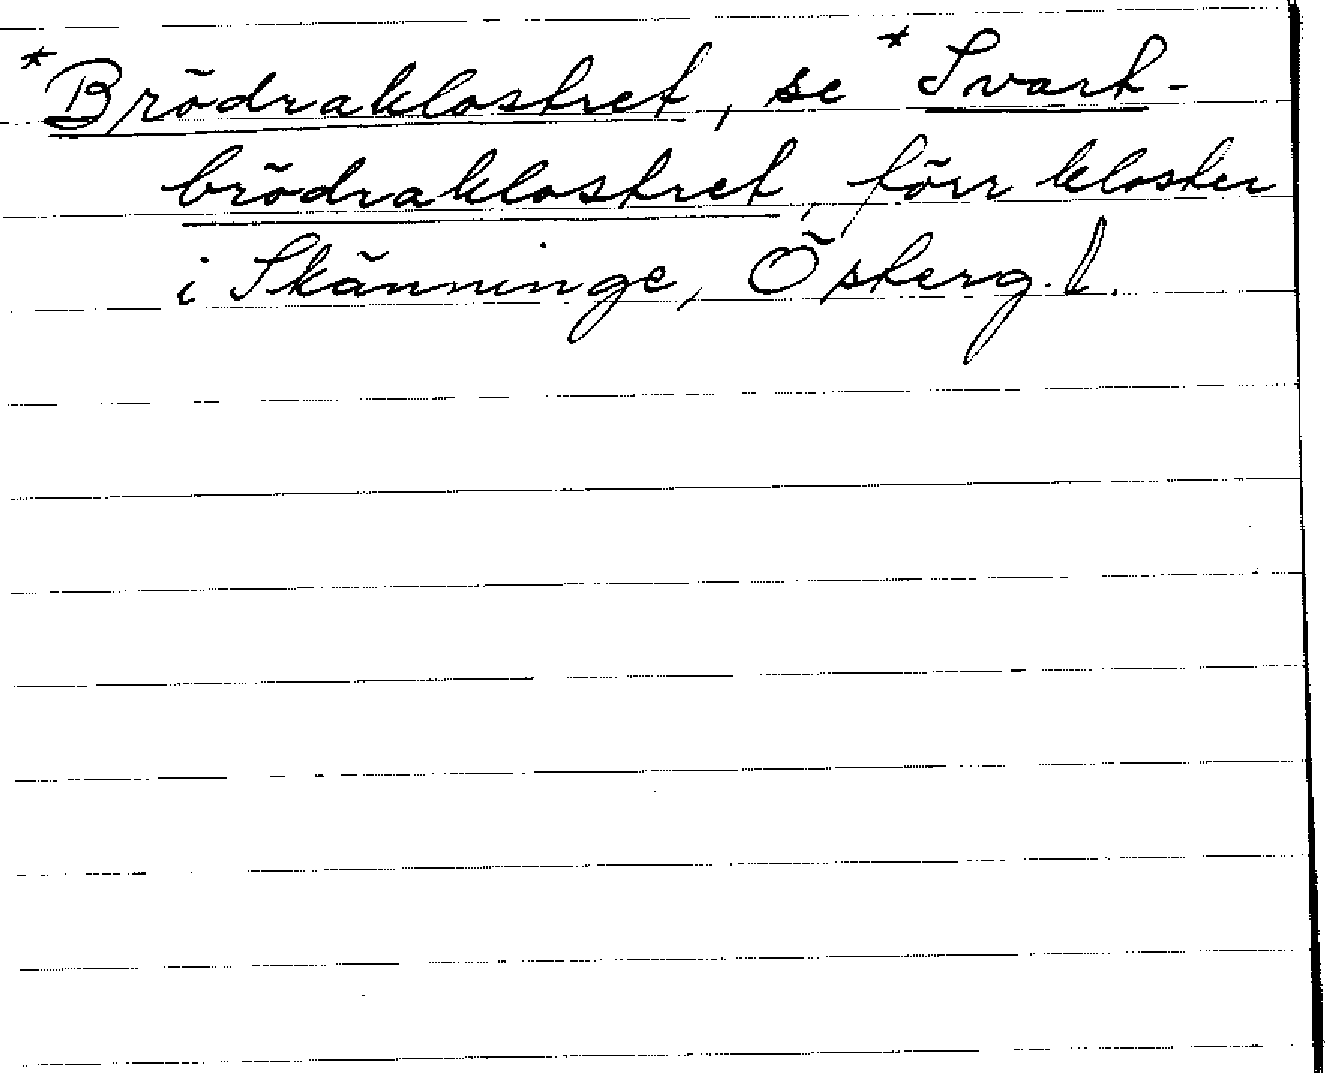 *Brödraklostret, se *Svart-
brödraklostret, förr kloster
i Skänninge, Österg. l.